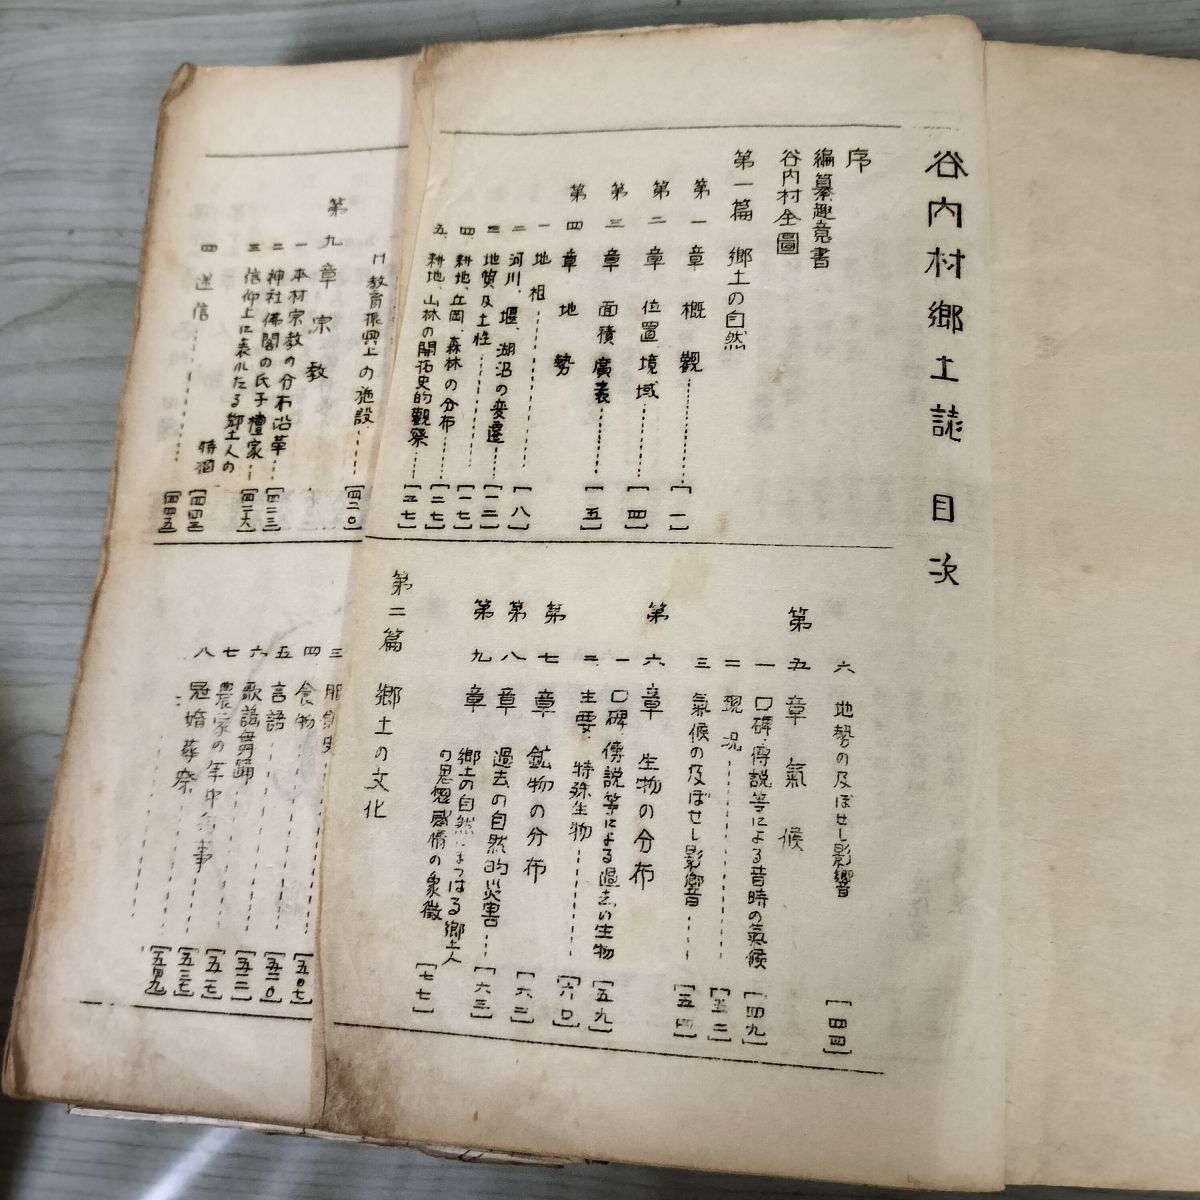 谷内村郷土誌 目次
序
編纂趣意書
谷内村全圖
第一篇 郷土の自然
第一章 概觀……[一]
第二章 位置 境域……[四]
第三章 面積 廣袤……[五]
第四章 地勢
一 地相……[八]
二 河川、堰、湖沼の変遷……[一二]
三 地質及土性……[一七]
四、耕地、丘岡、森林の分布……[二七]
五、耕地、山林の開拓史的觀察……[三七]
六 地勢の及ぼせし影響[四四]
第五章 氣候
一 口碑・傳説等による昔時の氣候[四九]
二 現況……[五二]
三 氣候の及ぼせし影響……[五四]
第六章 生物の分布
一 口碑、傳説等による過去の生物[五九]
二 主要、特殊生物……[六〇]
第七章 鉱物の分布[六二]
第八章 過去の自然的災害……[六三]
第九章 郷土の自然にまつはる郷土人の思想感情の象徴[七七]
第二篇 郷土の文化
教育振興上の施設……[四二〇]
第九章 宗教
一 本村宗教の分布沿革……[四二三]
二 神社佛閣の氏子檀家……[四二六]
三 信仰上に表れたる郷土人の特徴[四四三]
四 迷信……[四四五]
三 服飾史
四 食物……[五〇七]
五 言語……[五二〇]
六 歌謡舞踊……[五二二]
七 農家の年中行事……[五二七]
八 冠婚葬祭……[五三七]
[五四九]